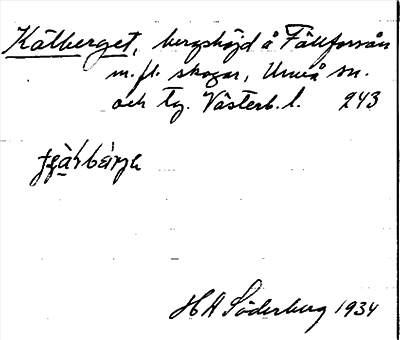 Kälberget, bergshöjd å Fällforsån
m.fl. skogar, Umeå sn.
och tg. Västerb. l. 243
H A Söderberg 1934